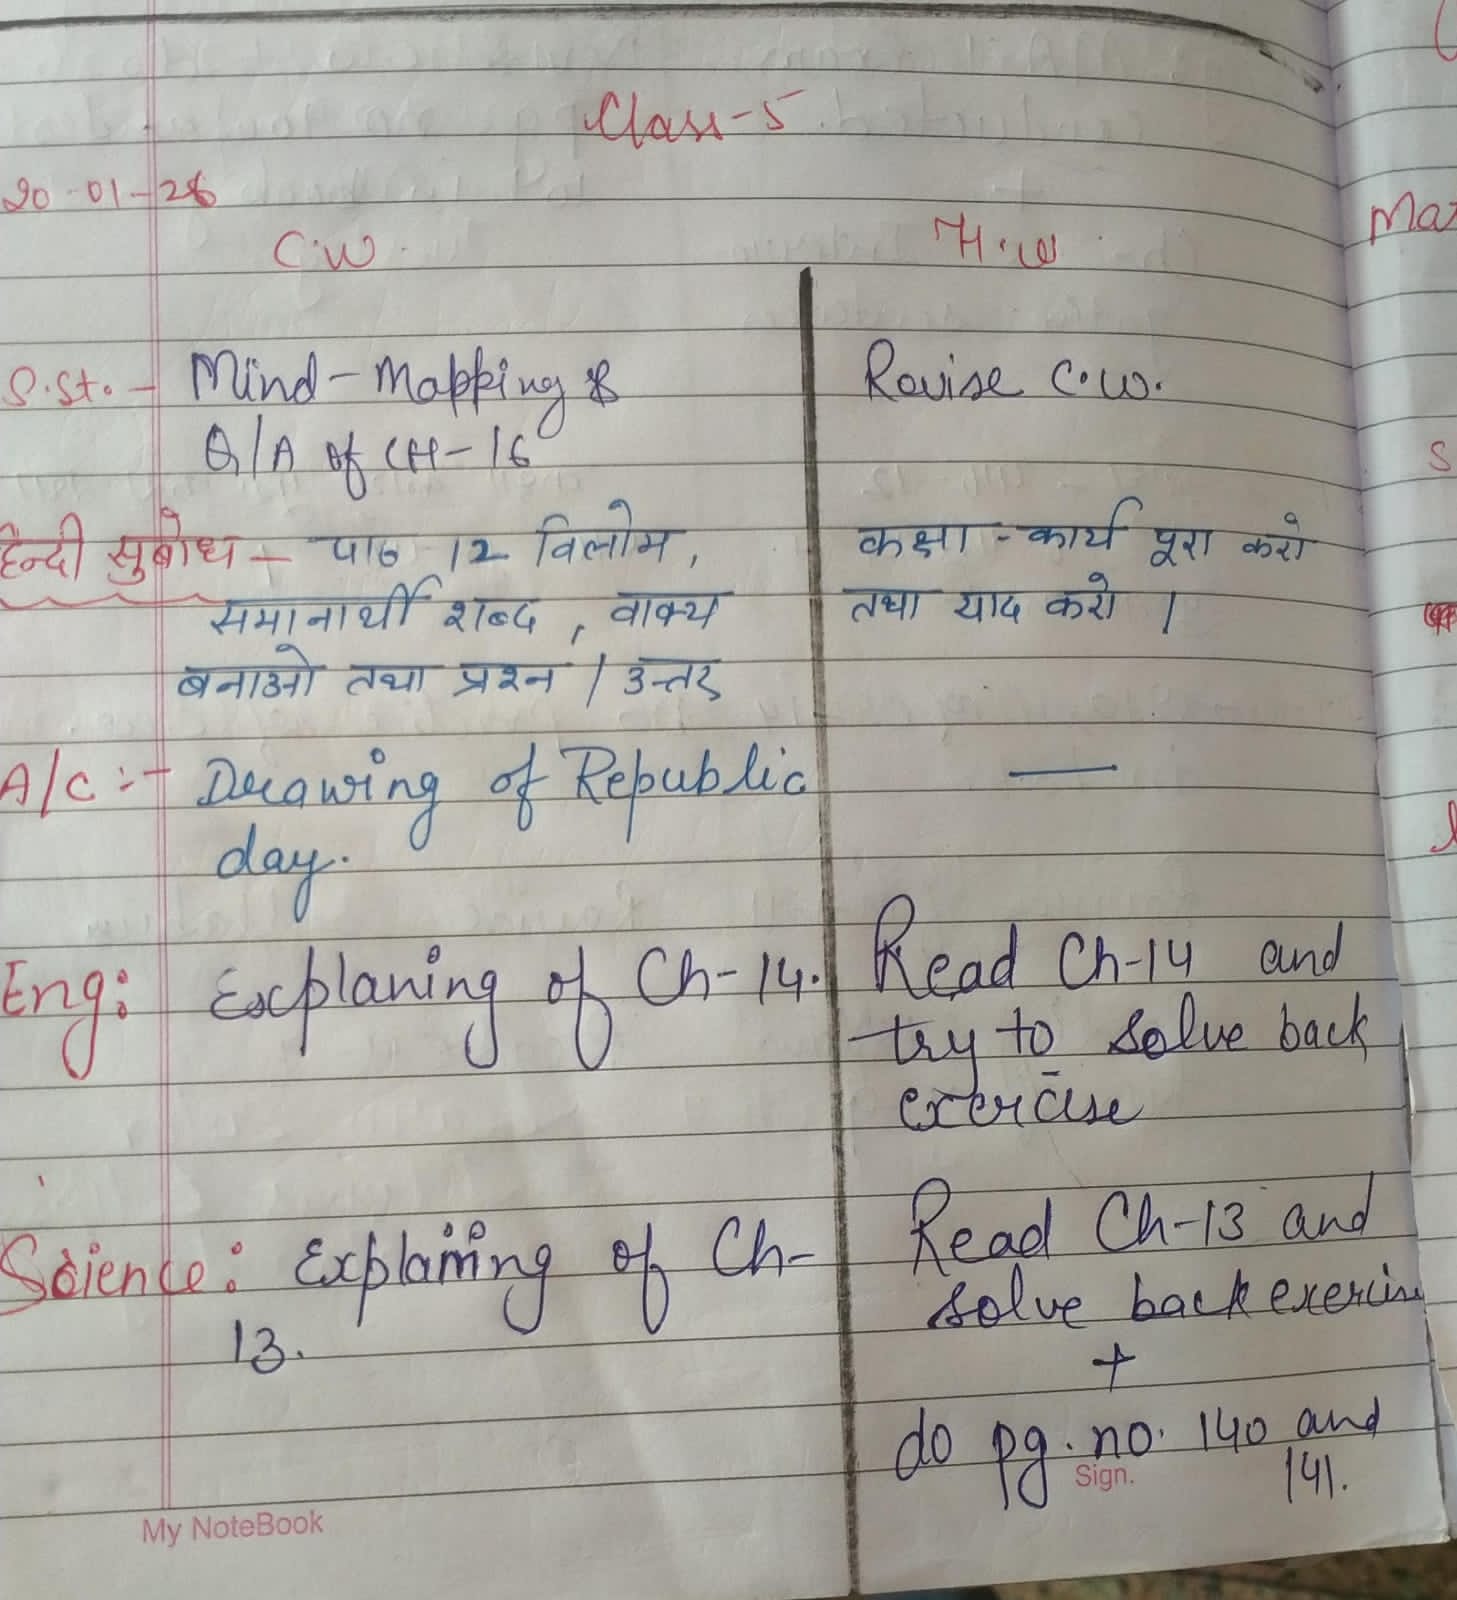 Class-5
20-01-26
C.W.
H.W
S.St. - Mind-Mapping &
Q/A of CH-16
Revise C.W.
हिन्दी सुबोध - पाठ 12 विलोम,
समानार्थी शब्द, वाक्य
बनाओ तथा प्रश्न / उत्तर
कक्षा-कार्य पूरा करो
तथा याद करो ।
A/C :- Drawing of Republic
day.
—
Eng: Explaning of Ch-14.
Read Ch-14 and
try to solve back
exercise
Science: Explaining of Ch-
13.
Read Ch-13 and
solve back exercise
+
do pg. no. 140 and
141.
Sign.
My NoteBook